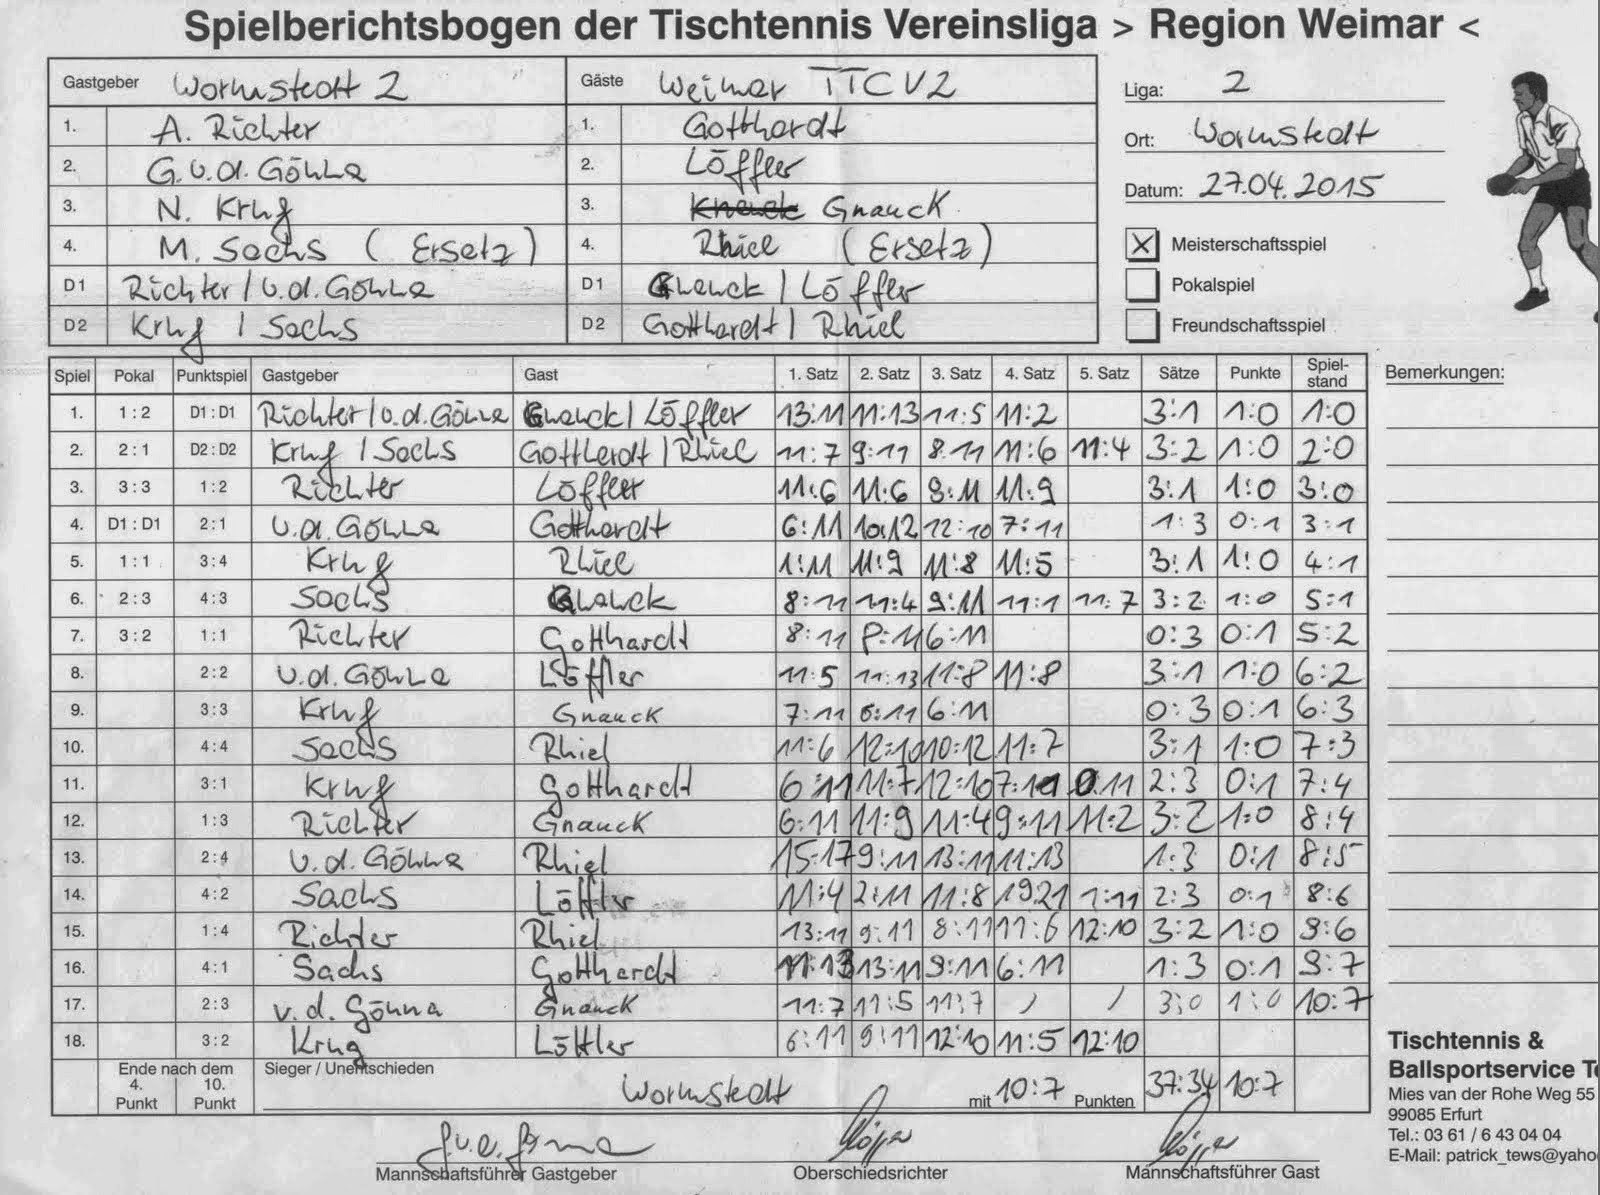 Spielberichtsbogen der Tischtennis Vereinsliga > Region Weimar <
Gastgeber Wormstedt 2 Gäste Weimar TTC V2
1. A. Richter 1. Gotthardt
2. G. v. d. Gönna 2. Löffler
3. N. Krug 3. Gnauck
4. M. Sachs (Ersatz) 4. Rhiel (Ersatz)
D1 Richter / v.d. Gönna D1 Gnauck / Löffler
D2 Krug / Sachs D2 Gotthardt / Rhiel
Liga: 2
Ort: Wormstedt
Datum: 27.04.2015
X Meisterschaftsspiel
Pokalspiel
Freundschaftsspiel
Spiel Pokal Punktspiel Gastgeber Gast 1. Satz 2. Satz 3. Satz 4. Satz 5. Satz Sätze Punkte Spiel-stand Bemerkungen:
1. 1:2 D1:D1 Richter / v.d. Gönna Gnauck / Löffler 13:11 11:13 11:5 11:2 3:1 1:0 1:0
2. 2:1 D2:D2 Krug / Sachs Gotthardt / Rhiel 11:7 9:11 8:11 11:6 11:4 3:2 1:0 2:0
3. 3:3 1:2 Richter Löffler 11:6 11:6 9:11 11:9 3:1 1:0 3:0
4. D1:D1 2:1 v.d. Gönna Gotthardt 6:11 10:12 12:10 7:11 1:3 0:1 3:1
5. 1:1 3:4 Krug Rhiel 1:11 11:9 11:8 11:5 3:1 1:0 4:1
6. 2:3 4:3 Sachs Gnauck 8:11 11:4 9:11 11:1 11:7 3:2 1:0 5:1
7. 3:2 1:1 Richter Gotthardt 8:11 8:11 6:11 0:3 0:1 5:2
8. 2:2 v.d. Gönna Löffler 11:5 11:13 11:8 11:8 3:1 1:0 6:2
9. 3:3 Krug Gnauck 7:11 6:11 6:11 0:3 0:1 6:3
10. 4:4 Sachs Rhiel 11:6 12:10 10:12 11:7 3:1 1:0 7:3
11. 3:1 Krug Gotthardt 6:11 11:7 12:10 7:11 0:11 2:3 0:1 7:4
12. 1:3 Richter Gnauck 6:11 11:9 11:4 9:11 11:2 3:2 1:0 8:4
13. 2:4 v.d. Gönna Rhiel 15:17 9:11 13:11 11:13 1:3 0:1 8:5
14. 4:2 Sachs Löffler 11:4 2:11 11:8 19:21 7:11 2:3 0:1 8:6
15. 1:4 Richter Rhiel 13:11 9:11 8:11 11:6 12:10 3:2 1:0 9:6
16. 4:1 Sachs Gotthardt 11:13 13:11 9:11 6:11 1:3 0:1 9:7
17. 2:3 v.d. Gönna Gnauck 11:7 11:5 11:7 / / 3:0 1:0 10:7
18. 3:2 Krug Löffler 6:11 9:11 12:10 11:5 12:10
Ende nach dem
4. Punkt 10. Punkt
Sieger / Unentschieden Wormstedt mit 10:7 Punkten 37:34 10:7
Mannschaftsführer Gastgeber Oberschiedsrichter Mannschaftsführer Gast
Tischtennis &
Ballsportservice
Mies van der Rohe Weg 55
99085 Erfurt
Tel.: 03 61 / 6 43 04 04
E-Mail: patrick_tews@yaho